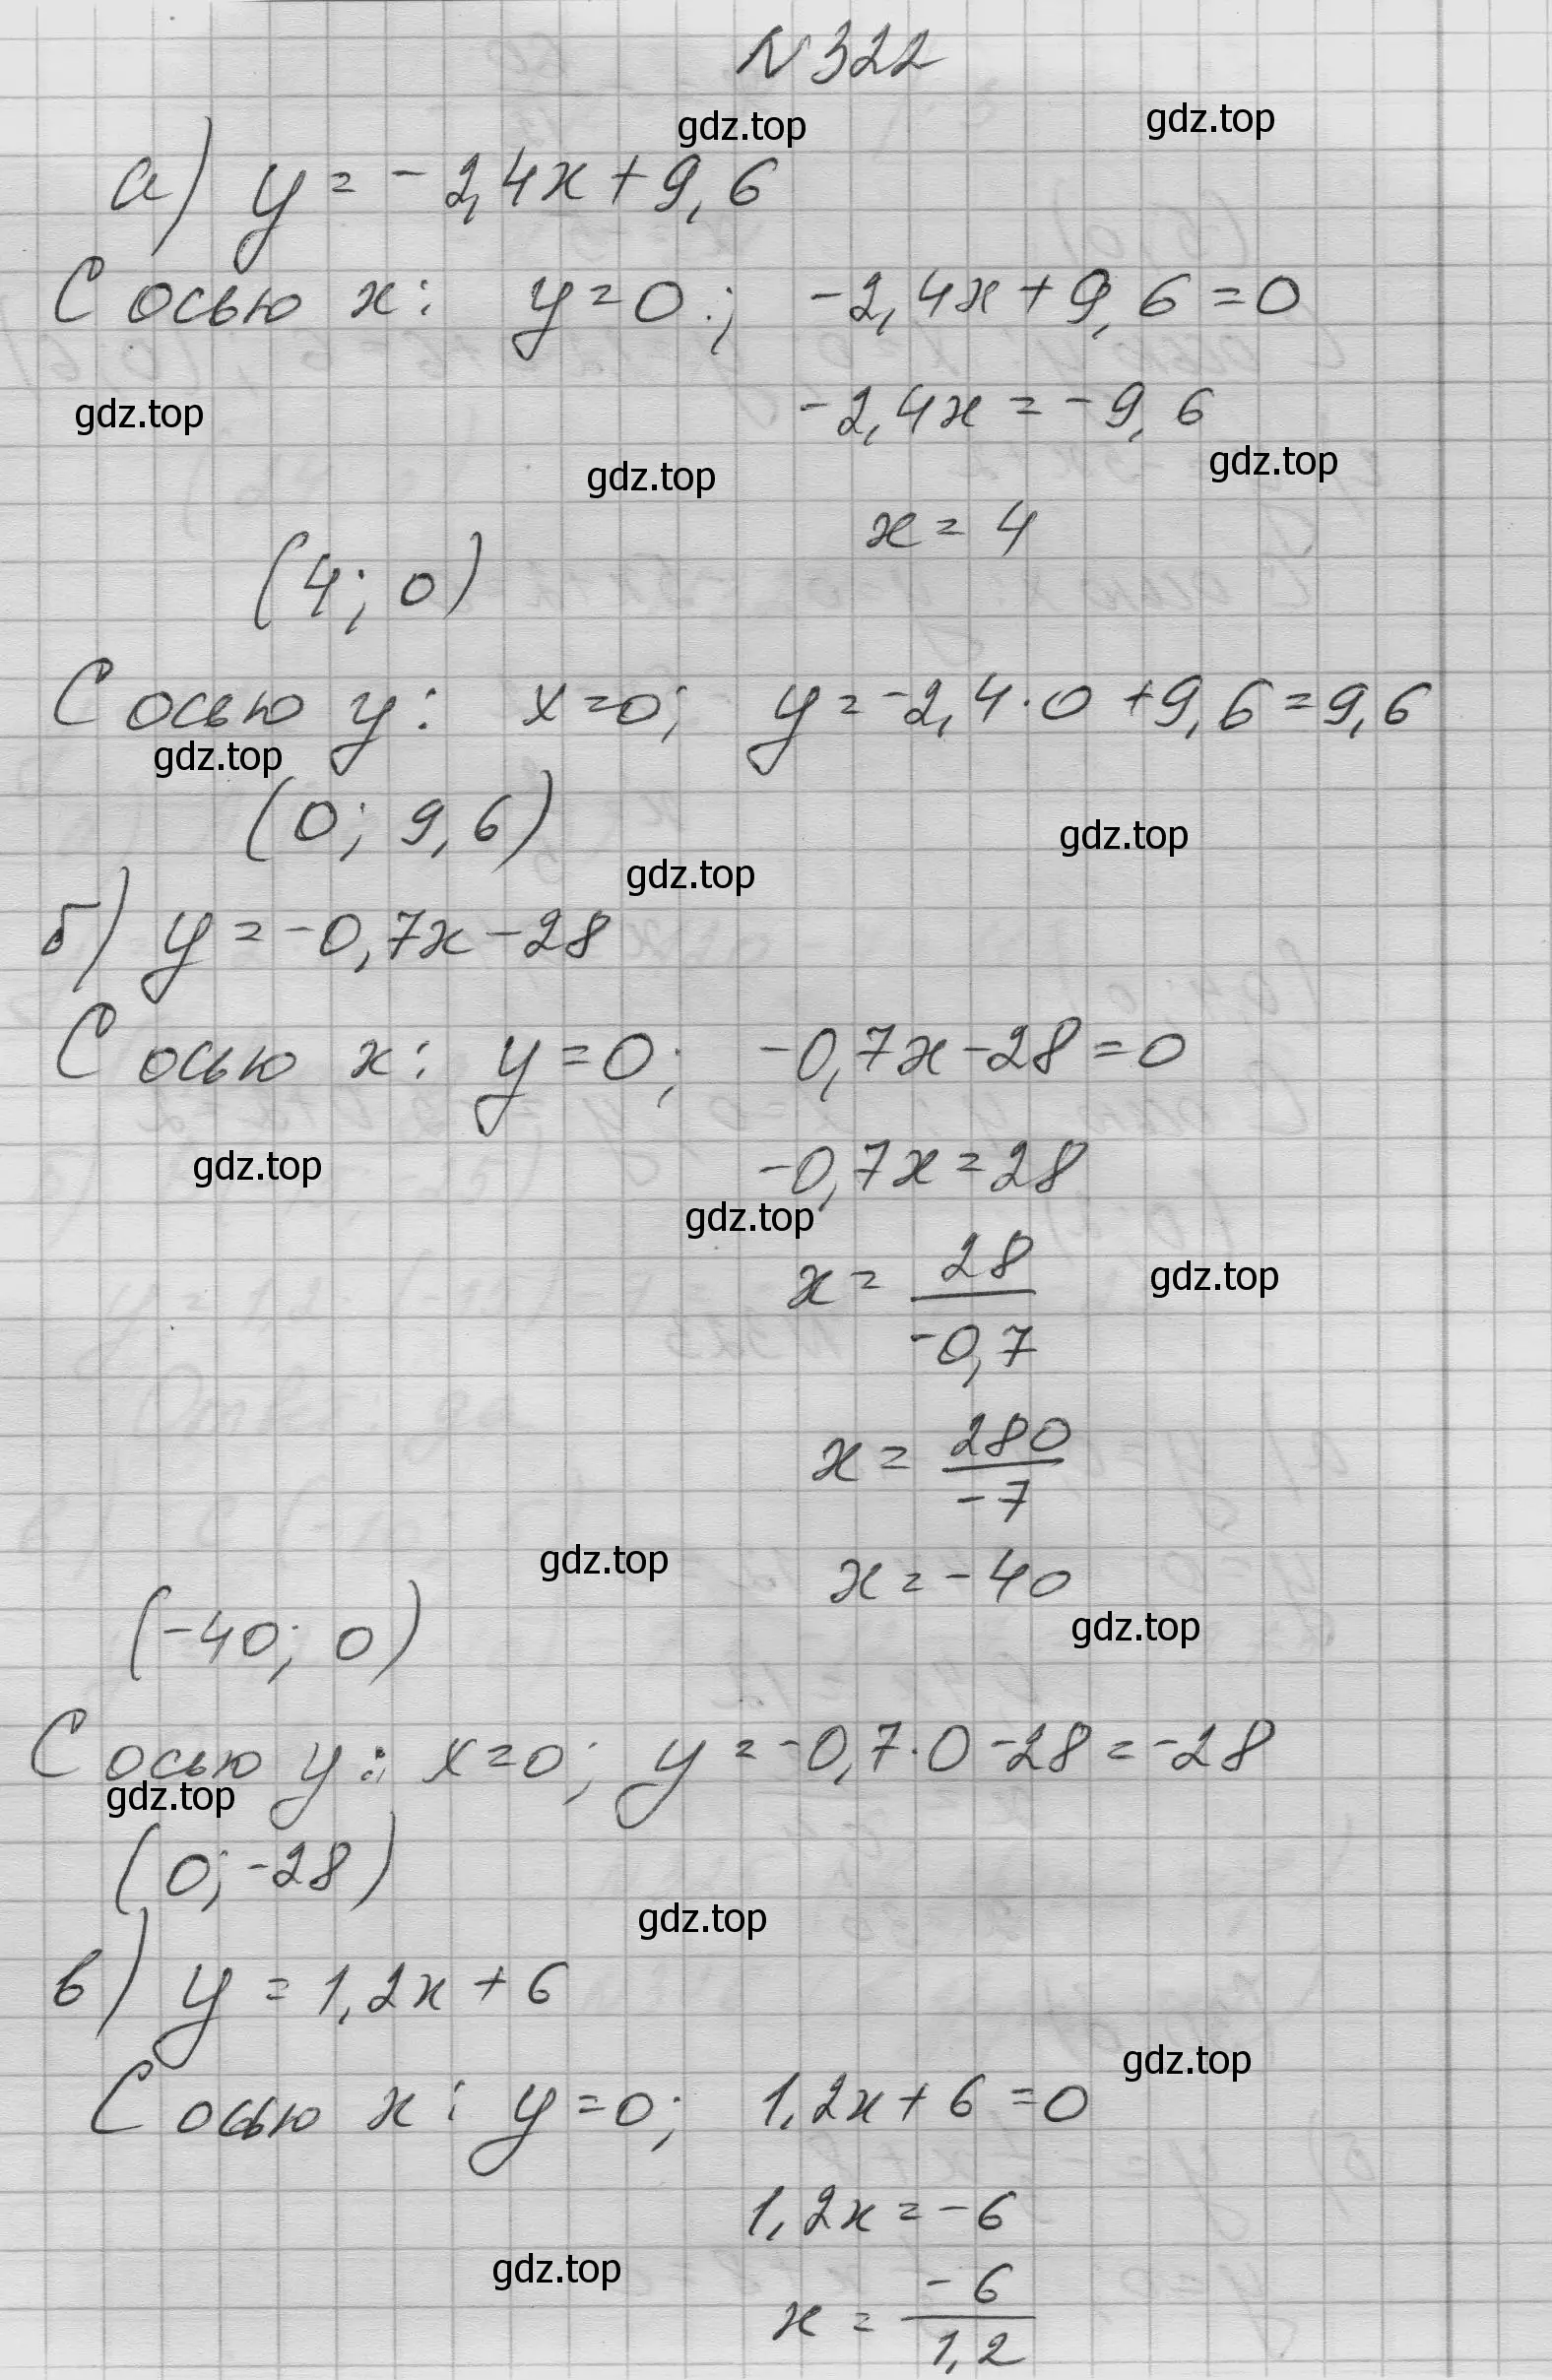 N 322
gdz.top
gdz.top
а) y = -2,4x + 9,6
С осью x: y = 0; -2,4x + 9,6 = 0
gdz.top
-2,4x = -9,6
gdz.top
gdz.top
x = 4
(4; 0)
С осью y: x = 0; y = -2,4 · 0 + 9,6 = 9,6
gdz.top
(0; 9,6)
gdz.top
gdz.top
б) y = -0,7x - 28
С осью x: y = 0; -0,7x - 28 = 0
gdz.top
-0,7x = 28
gdz.top
x = 28 / -0,7
gdz.top
x = 280 / -7
gdz.top
x = -40
gdz.top
(-40; 0)
С осью y: x = 0; y = -0,7 · 0 - 28 = -28
gdz.top
(0; -28)
gdz.top
в) y = 1,2x + 6
gdz.top
С осью x: y = 0; 1,2x + 6 = 0
1,2x = -6
gdz.top
x = -6 / 1,2